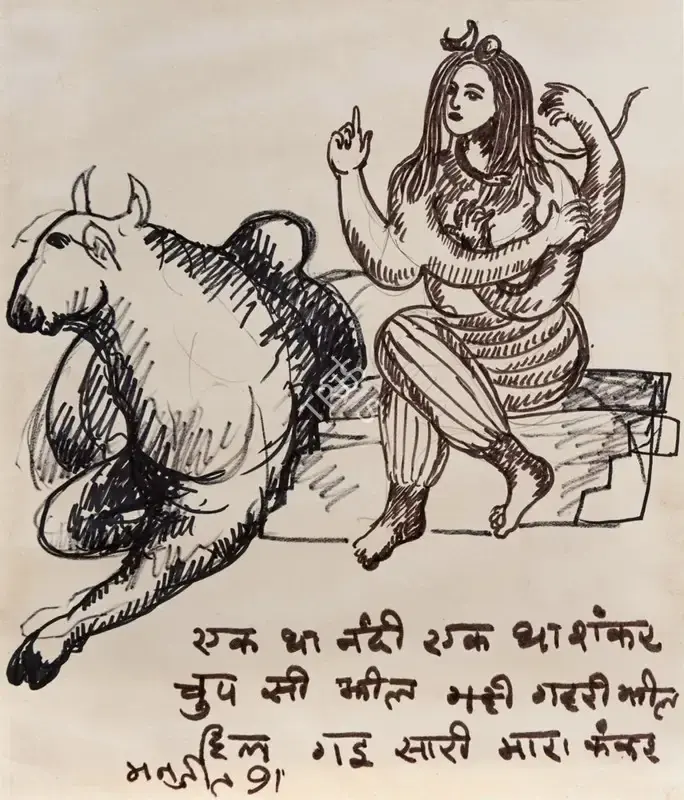 एक था नंदी एक था शंकर
चुप सी झील भई गहरी झील
हिल गइ सारी मारा कंकर
मनजीत 91